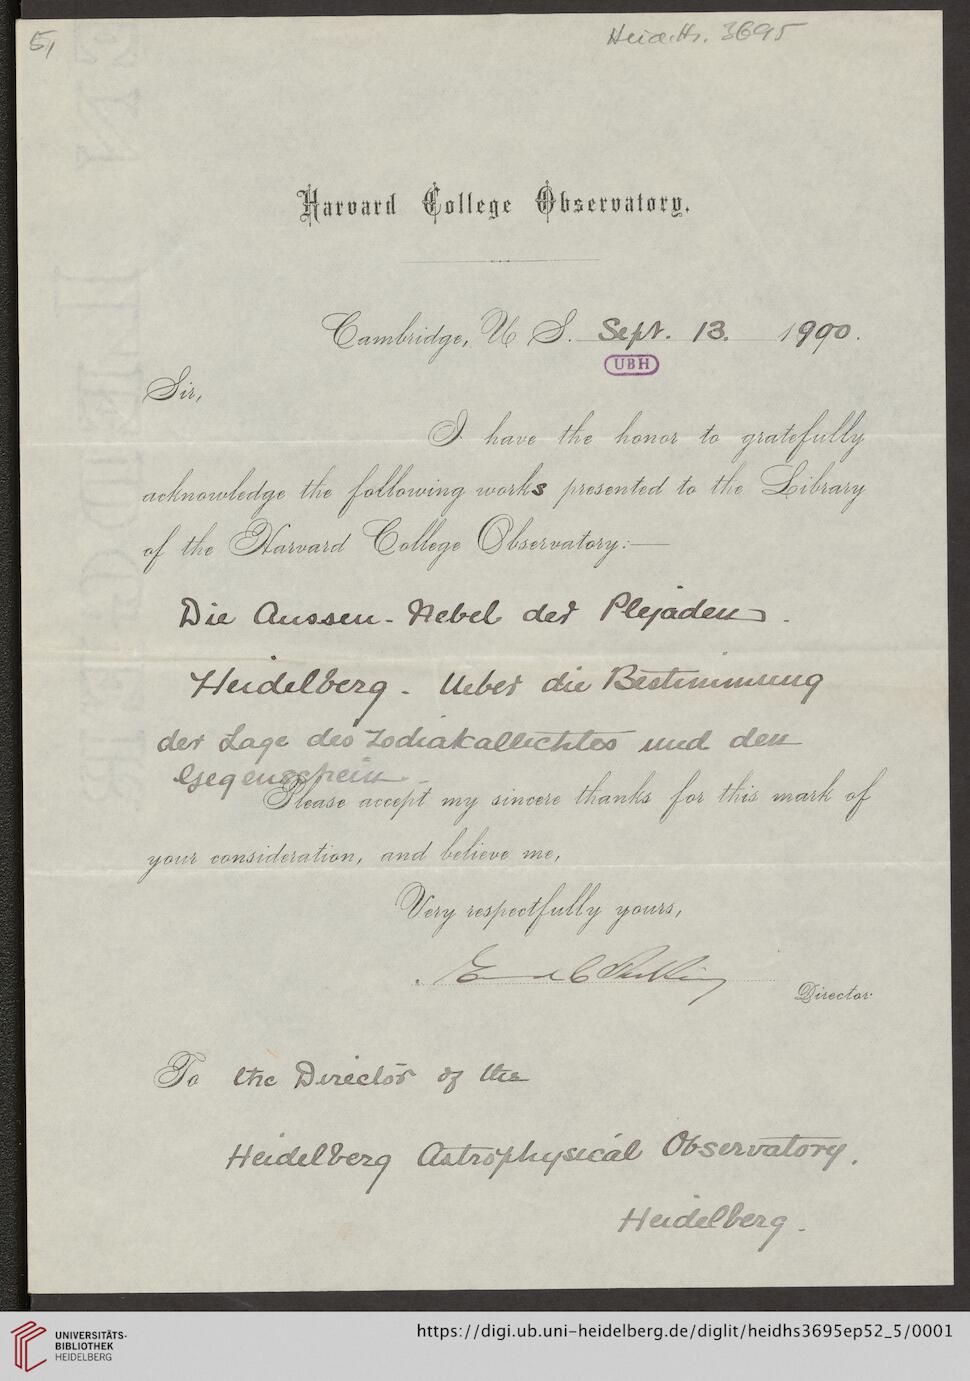 5,
Heid.Hs. 3695
Harvard College Observatory.
Cambridge, U. S. Sept. 13. 1900.
UBH
Sir,
I have the honor to gratefully
acknowledge the following works presented to the Library
of the Harvard College Observatory:—
Die Aussen-Nebel der Plejaden.
Heidelberg. Ueber die Bestimmung
der Lage des Zodiakallichtes und den
Gegenschein.
Please accept my sincere thanks for this mark of
your consideration, and believe me,
Very respectfully yours,
Edward C. Pickering
Director.
To the Director of the
Heidelberg Astrophysical Observatory.
Heidelberg.
UNIVERSITÄTS-
BIBLIOTHEK
HEIDELBERG
https://digi.ub.uni-heidelberg.de/diglit/heidhs3695ep52_5/0001